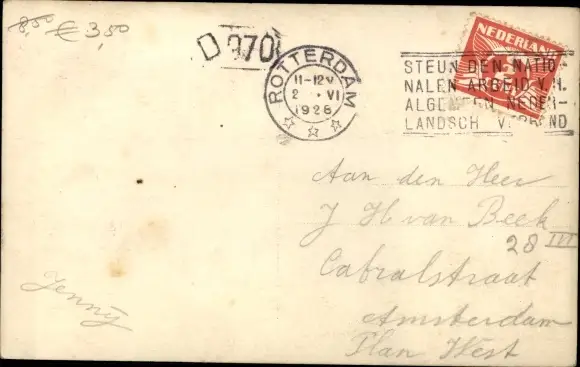 8,50 € 3,50
D 970
ROTTERDAM
11-12V
2 VI
1926
NEDERLAND
STEUN DEN NATIO-
NALEN ARBEID V.H.
ALGEMEEN NEDER-
LANDSCH VERBOND
Aan den Heer
J H van Beek
Cabralstraat 28 III
Amsterdam
Plan West
Jenny